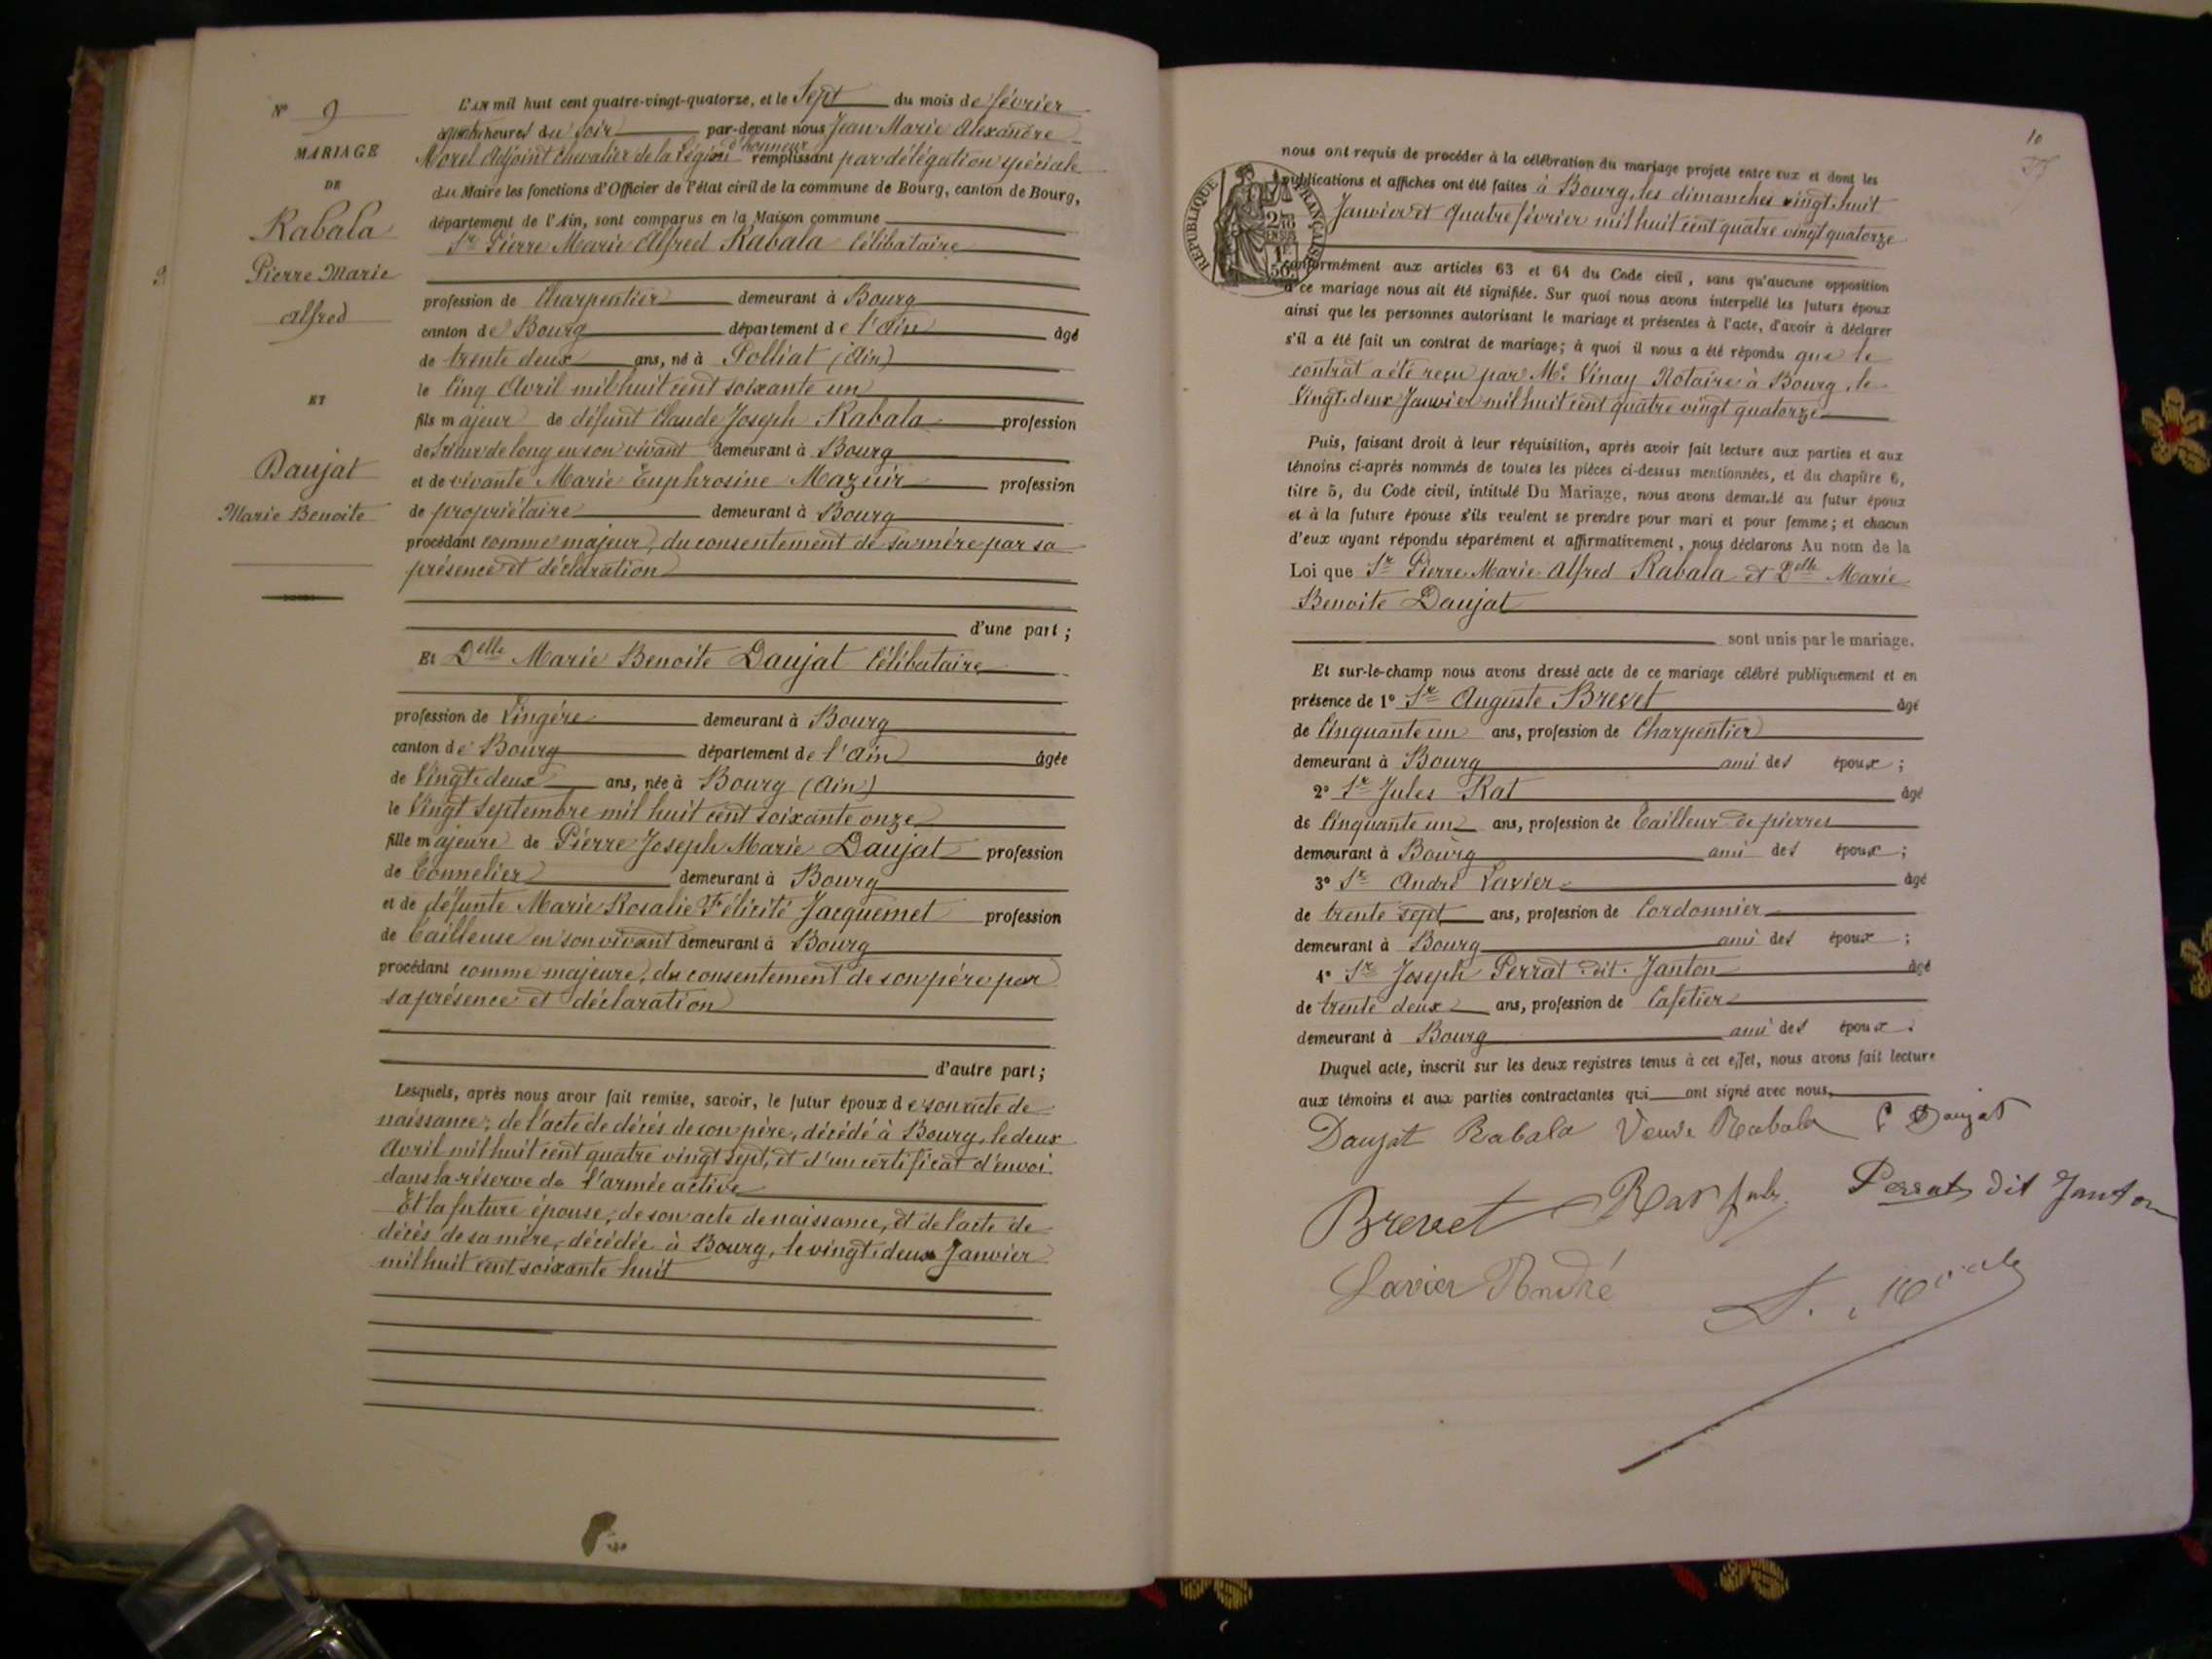 N° 9
MARIAGE
DE
Rabala
Pierre Marie
Alfred
ET
Daujat
Marie Benoite
L'AN mil huit cent quatre-vingt-quatorze, et le Sept du mois de février
à quatre heures du soir par-devant nous Jean Marie Alexandre
Morel Adjoint Chevalier de la Légion d'honneur remplissant par délégation spéciale
du Maire les fonctions d'Officier de l'état civil de la commune de Bourg, canton de Bourg,
département de l'Ain, sont comparus en la Maison commune
Sr Pierre Marie Alfred Rabala Célibataire
profession de Charpentier demeurant à Bourg
canton de Bourg département de l'Ain âgé
de trente deux ans, né à Polliat (Ain)
le Cinq Avril mil huit cent soixante un
fils majeur de défunt Claude Joseph Rabala profession
de Scieur de long en son vivant demeurant à Bourg
et de vivante Marie Euphrosine Mazuir profession
de propriétaire demeurant à Bourg
procédant comme majeur, du consentement de sa mère par sa
présence et déclaration
d'une part ;
Et Delle Marie Benoite Daujat Célibataire
profession de Lingère demeurant à Bourg
canton de Bourg département de l'Ain âgée
de Vingt deux ans, née à Bourg (Ain)
le Vingt Septembre mil huit cent soixante onze
fille majeure de Pierre Joseph Marie Daujat profession
de Tonnelier demeurant à Bourg
et de défunte Marie Rosalie Félicité Jacquemet profession
de Tailleuse en son vivant demeurant à Bourg
procédant comme majeure, du consentement de son père par
sa présence et déclaration
d'autre part ;
Lesquels, après nous avoir fait remise, savoir, le futur époux de son acte de
naissance, de l'acte de décès de son père, décédé à Bourg, le deux
Avril mil huit cent quatre vingt sept, et d'un certificat d'envoi
dans la réserve de l'armée active
Et la future épouse, de son acte de naissance, et de l'acte de
décès de sa mère, décédée à Bourg, le vingt deux Janvier
mil huit cent soixante huit
10
RÉPUBLIQUE FRANÇAISE
nous ont requis de procéder à la célébration du mariage projeté entre eux et dont les
publications et affiches ont été faites à Bourg, les dimanches vingt huit
Janvier et Quatre février mil huit cent quatre vingt quatorze
conformément aux articles 63 et 64 du Code civil, sans qu'aucune opposition
à ce mariage nous ait été signifiée. Sur quoi nous avons interpellé les futurs époux
ainsi que les personnes autorisant le mariage et présentes à l'acte, d'avoir à déclarer
s'il a été fait un contrat de mariage ; à quoi il nous a été répondu que le
contrat a été reçu par Me Vinay Notaire à Bourg, le
Vingt deux Janvier mil huit cent quatre vingt quatorze
Puis, faisant droit à leur réquisition, après avoir fait lecture aux parties et aux
témoins ci-après nommés de toutes les pièces ci-dessus mentionnées, et du chapitre 6,
titre 5, du Code civil, intitulé Du Mariage, nous avons demandé au futur époux
et à la future épouse s'ils veulent se prendre pour mari et pour femme ; et chacun
d'eux ayant répondu séparément et affirmativement, nous déclarons Au nom de la
Loi que Sr Pierre Marie Alfred Rabala et Delle Marie
Benoite Daujat
sont unis par le mariage.
Et sur-le-champ nous avons dressé acte de ce mariage célébré publiquement et en
présence de 1° Sr Auguste Brevet âgé
de Cinquante un ans, profession de Charpentier
demeurant à Bourg ami des époux ;
2° Sr Jules Rat âgé
de Cinquante un ans, profession de Tailleur de pierres
demeurant à Bourg ami des époux ;
3° Sr André Lavier âgé
de trente sept ans, profession de Cordonnier
demeurant à Bourg ami des époux ;
4° Sr Joseph Perrat dit Janton âgé
de trente deux ans, profession de Cafetier
demeurant à Bourg ami des époux.
Duquel acte, inscrit sur les deux registres tenus à cet effet, nous avons fait lecture
aux témoins et aux parties contractantes qui ont signé avec nous,
Daujat Rabala Veuve Rabala Daujat
Brevet Rat Jules Perrat dit Janton
Lavier André